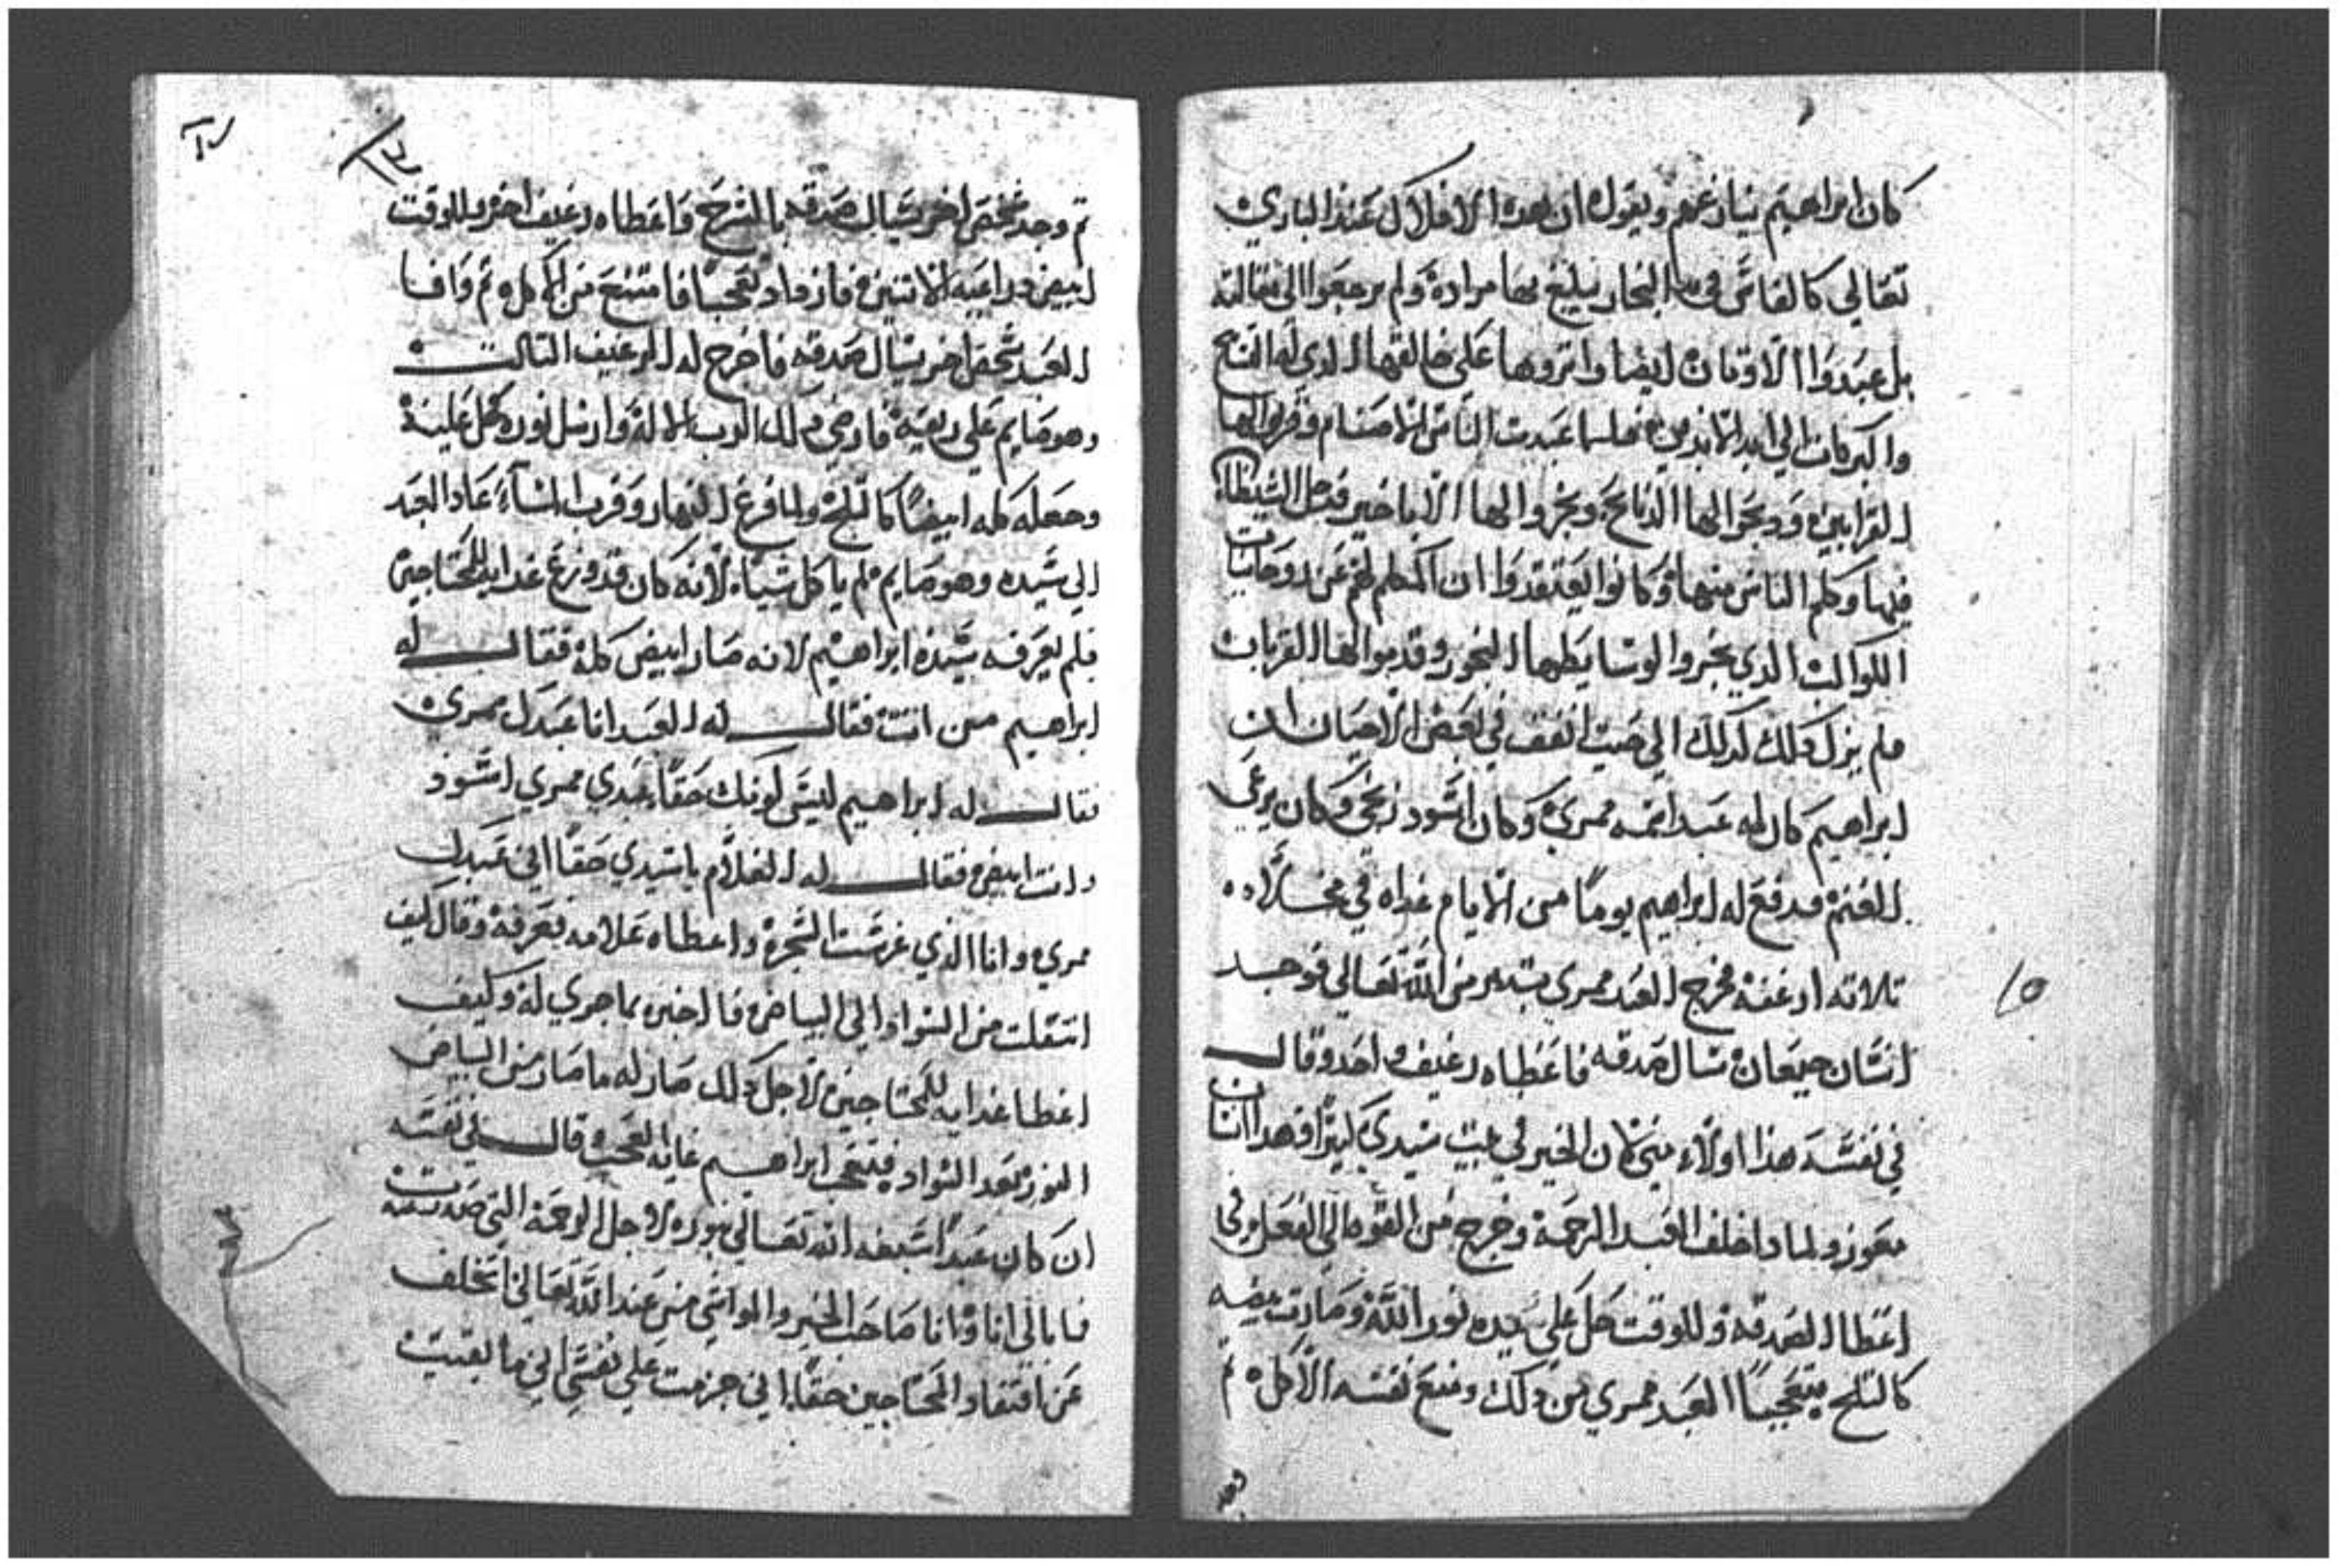 كان ابراهيم ينازعهم ويقول ان هده الافلاك عند الباري
تعالي كالفاس في يد النجار يبلغ بها مراده ولم يرجعوا الي مقالته
بل عبدوا الاوتان ايضا واتروها على خالقها الدي له المدح
والبركات الي ابد الابدين فلما عبدت الناس الاصنام وقربوا لها
القرابين ودبحوا لها الدبايح وبخروا لها الاباخير فدخل الشيطان
فيها وكلم الناس منها وكانوا يعتقدوا ان المكلم لهم عن روحانيات
الكواكب الدي بخروا لوسايطها البخور وقدموا لها القربات
فلم يزل دلك كدلك الي حيت اتفق في بعض الاحيان ان
ابراهيم كان له عبد اسمه ممري وكان اسود زنجي وكان يرعى
الغنم فدفع له ابراهيم يوما من الايام غداه في مخلاه
تلاته ارغفه فخرج العبد ممري بتدبير من الله تعالي فوجد
انسان جيعان سال صدقه فاعطاه رغيف واحد وقال
في نفسه هذا اولاء مني لان الخير في بيت سيدي كتيرا وهدا انسان
معوز ولما داخلت العبد الرحمة وخرج من القوه الي الفعل وفي
اعطا الصدقه وللوقت حل على يده نور الله وصارت بيضه
كالتلج متعجبا العبد ممري من دلك ومنع نفسه الاكل تم
١٥
تم وجد شخص اخر يسال صدقه بالشرح فاعطاه رغيف اخر وللوقت
ابيض دراعيه الاتنين فازداد تعجبا فامتنع من الاكل تم وافا
العبد شخص اخر يسال صدقه فاخرج له الرغيف التالت
وهو صايم على ريقه فارضي دلك الرب الاله وارسل نوره حل عليه
وجعله كله ابيضا كالتلج ولما فرغ النهار وقرب المساء عاد العبد
الي سيده وهو صايم لم ياكل شيا لانه كان قد وزع غدايه للمحتاجين
فلم يعرفه سيده ابراهيم لانه صار ابيض كله فقال له
ابراهيم من انت فقال له العبد انا عبدك ممري
فقال له ابراهيم ليس لونك حقا عبدي ممري اسود
وانت ابيض فقال له الغلام يا سيدي حقا اني عبدك
ممري وانا الذي غرست الشجره واعطاه علامه فعرفه وقال كيف
انتقلت من السواد الي البياض فاخبره بما جري له وكيف
اعطا غدايه للمحتاجين لاجل دلك صار له ما صار من البياض
النوز بعد السواد فتعجب ابراهيم غاية العجب وقال في نفسه
ان كان عبدا شبعه الله تعالي بنوره لاجل الرحمة التي صدرت منه
فما بالي انا وانا صاحب الخير والمواشي من عند الله تعالي اتخلف
عن افتقاد المحتاجين حقا اني جزمت على نفسي اني ما بقيت